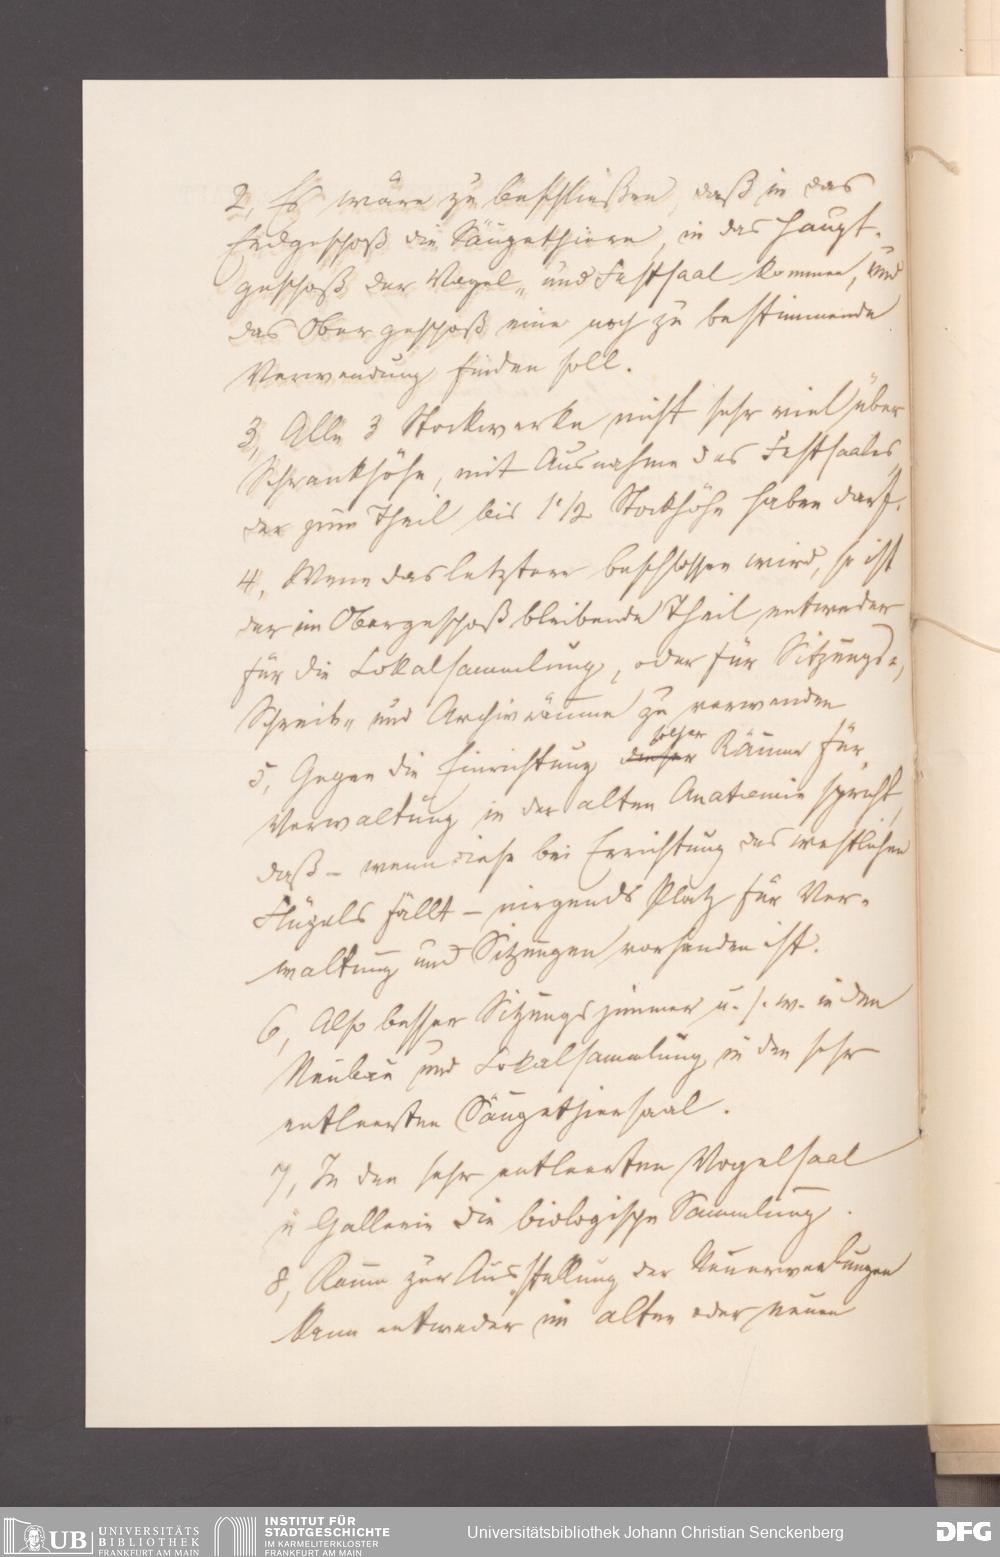 2, Es wäre zu beschließen, daß in das
Erdgeschoß die Säugethiere, in das Haupt-
geschoß der Vogel- und Festsaal kommen, und
das Obergeschoß eine noch zu bestimmende
Verwendung finden soll.
3, Alle 3 Stockwerke nicht sehr viel über
Schrankhöhe, mit Ausnahme des Festsaales,
der zum Theil bis 1 1/2 Stockhöhe haben darf.
4, Wenn das letztere beschlossen wird, so ist
der im Obergeschoß bleibende Theil entweder
für die Lokalsammlung, oder für Sitzungs-,
Schreib- und Archivräume zu verwenden
5, Gegen die Einrichtung dieser solcher Räume für
Verwaltung in der alten Anatomie spricht,
daß – wenn diese bei Errichtung des westlichen
Flügels fällt – nirgends Platz für Ver-
waltung und Sitzungen vorhanden ist.
6, Also besser Sitzungszimmer u. s. w. in den
Neubau und Lokalsammlung in den sehr
entleerten Säugethiersaal.
7, In den sehr entleerten Vogelsaal
u Gallerie die biologische Sammlung.
8, Raum zur Ausstellung der Neuerwerbungen
kann entweder im alten oder neuen
UB UNIVERSITÄTS
BIBLIOTHEK
FRANKFURT AM MAIN
INSTITUT FÜR
STADTGESCHICHTE
IM KARMELITERKLOSTER
FRANKFURT AM MAIN
Universitätsbibliothek Johann Christian Senckenberg
DFG